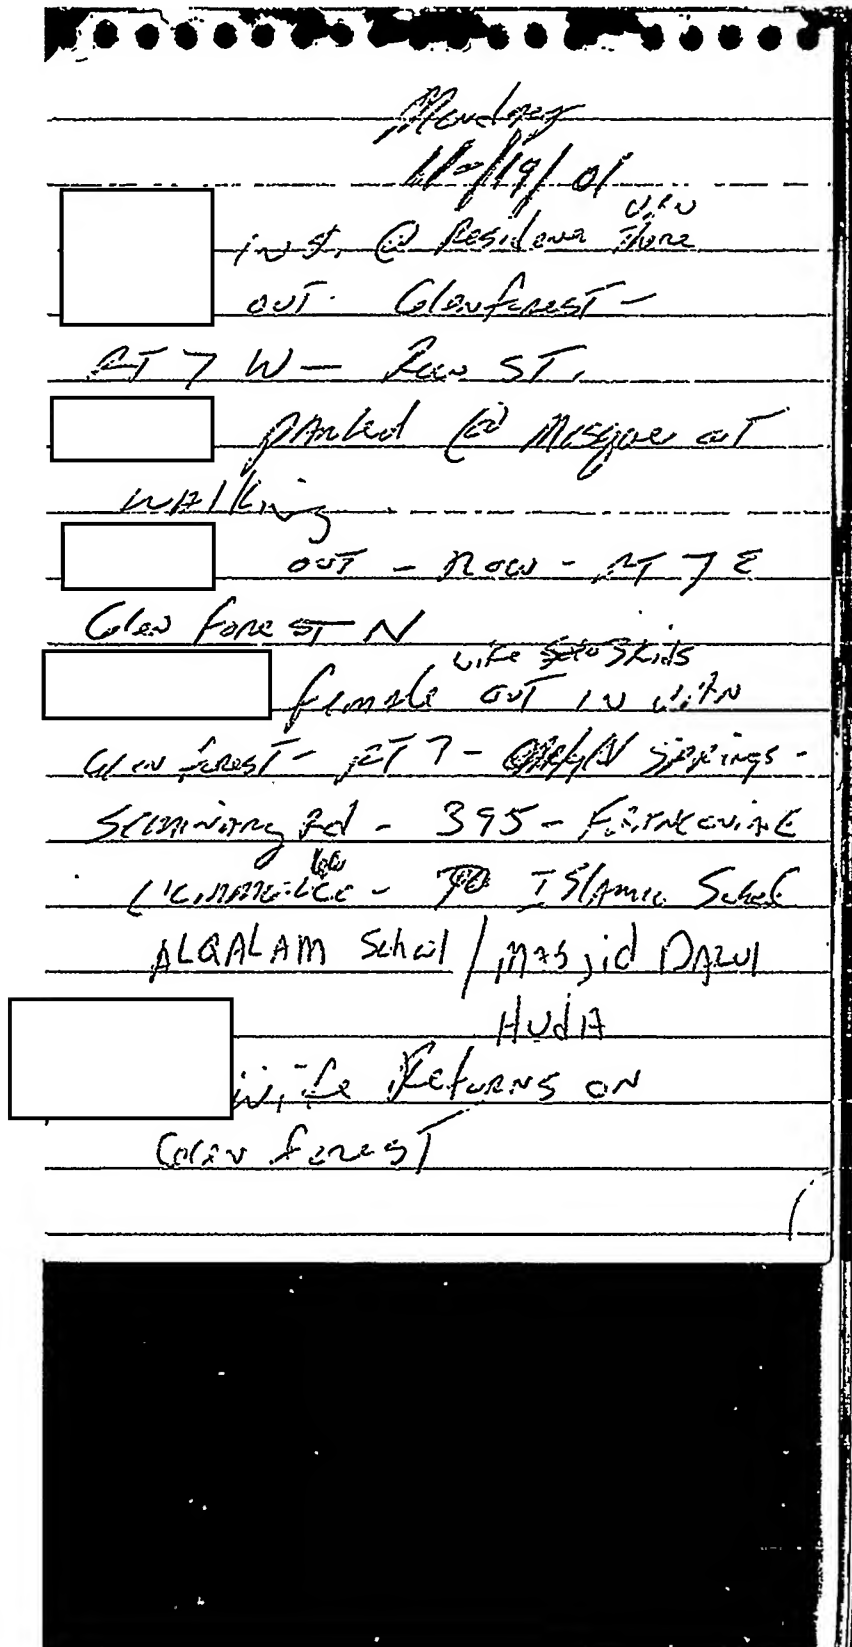 Monday
11-/19/01
VAN
inst. @ Residence there
out. Glenforest -
RT 7 W - Row ST.
parked @ Mosque out
walking
out - Row - RT 7 E
Glen Forest N
wife 3kids
female out in VAN
Glen forest - RT 7 - Springs -
Seminary Rd - 395 -
- TO ISlamic School
ALQALAM School / MASjid DARUl
HUdA
wife Returns ON
Glen forest